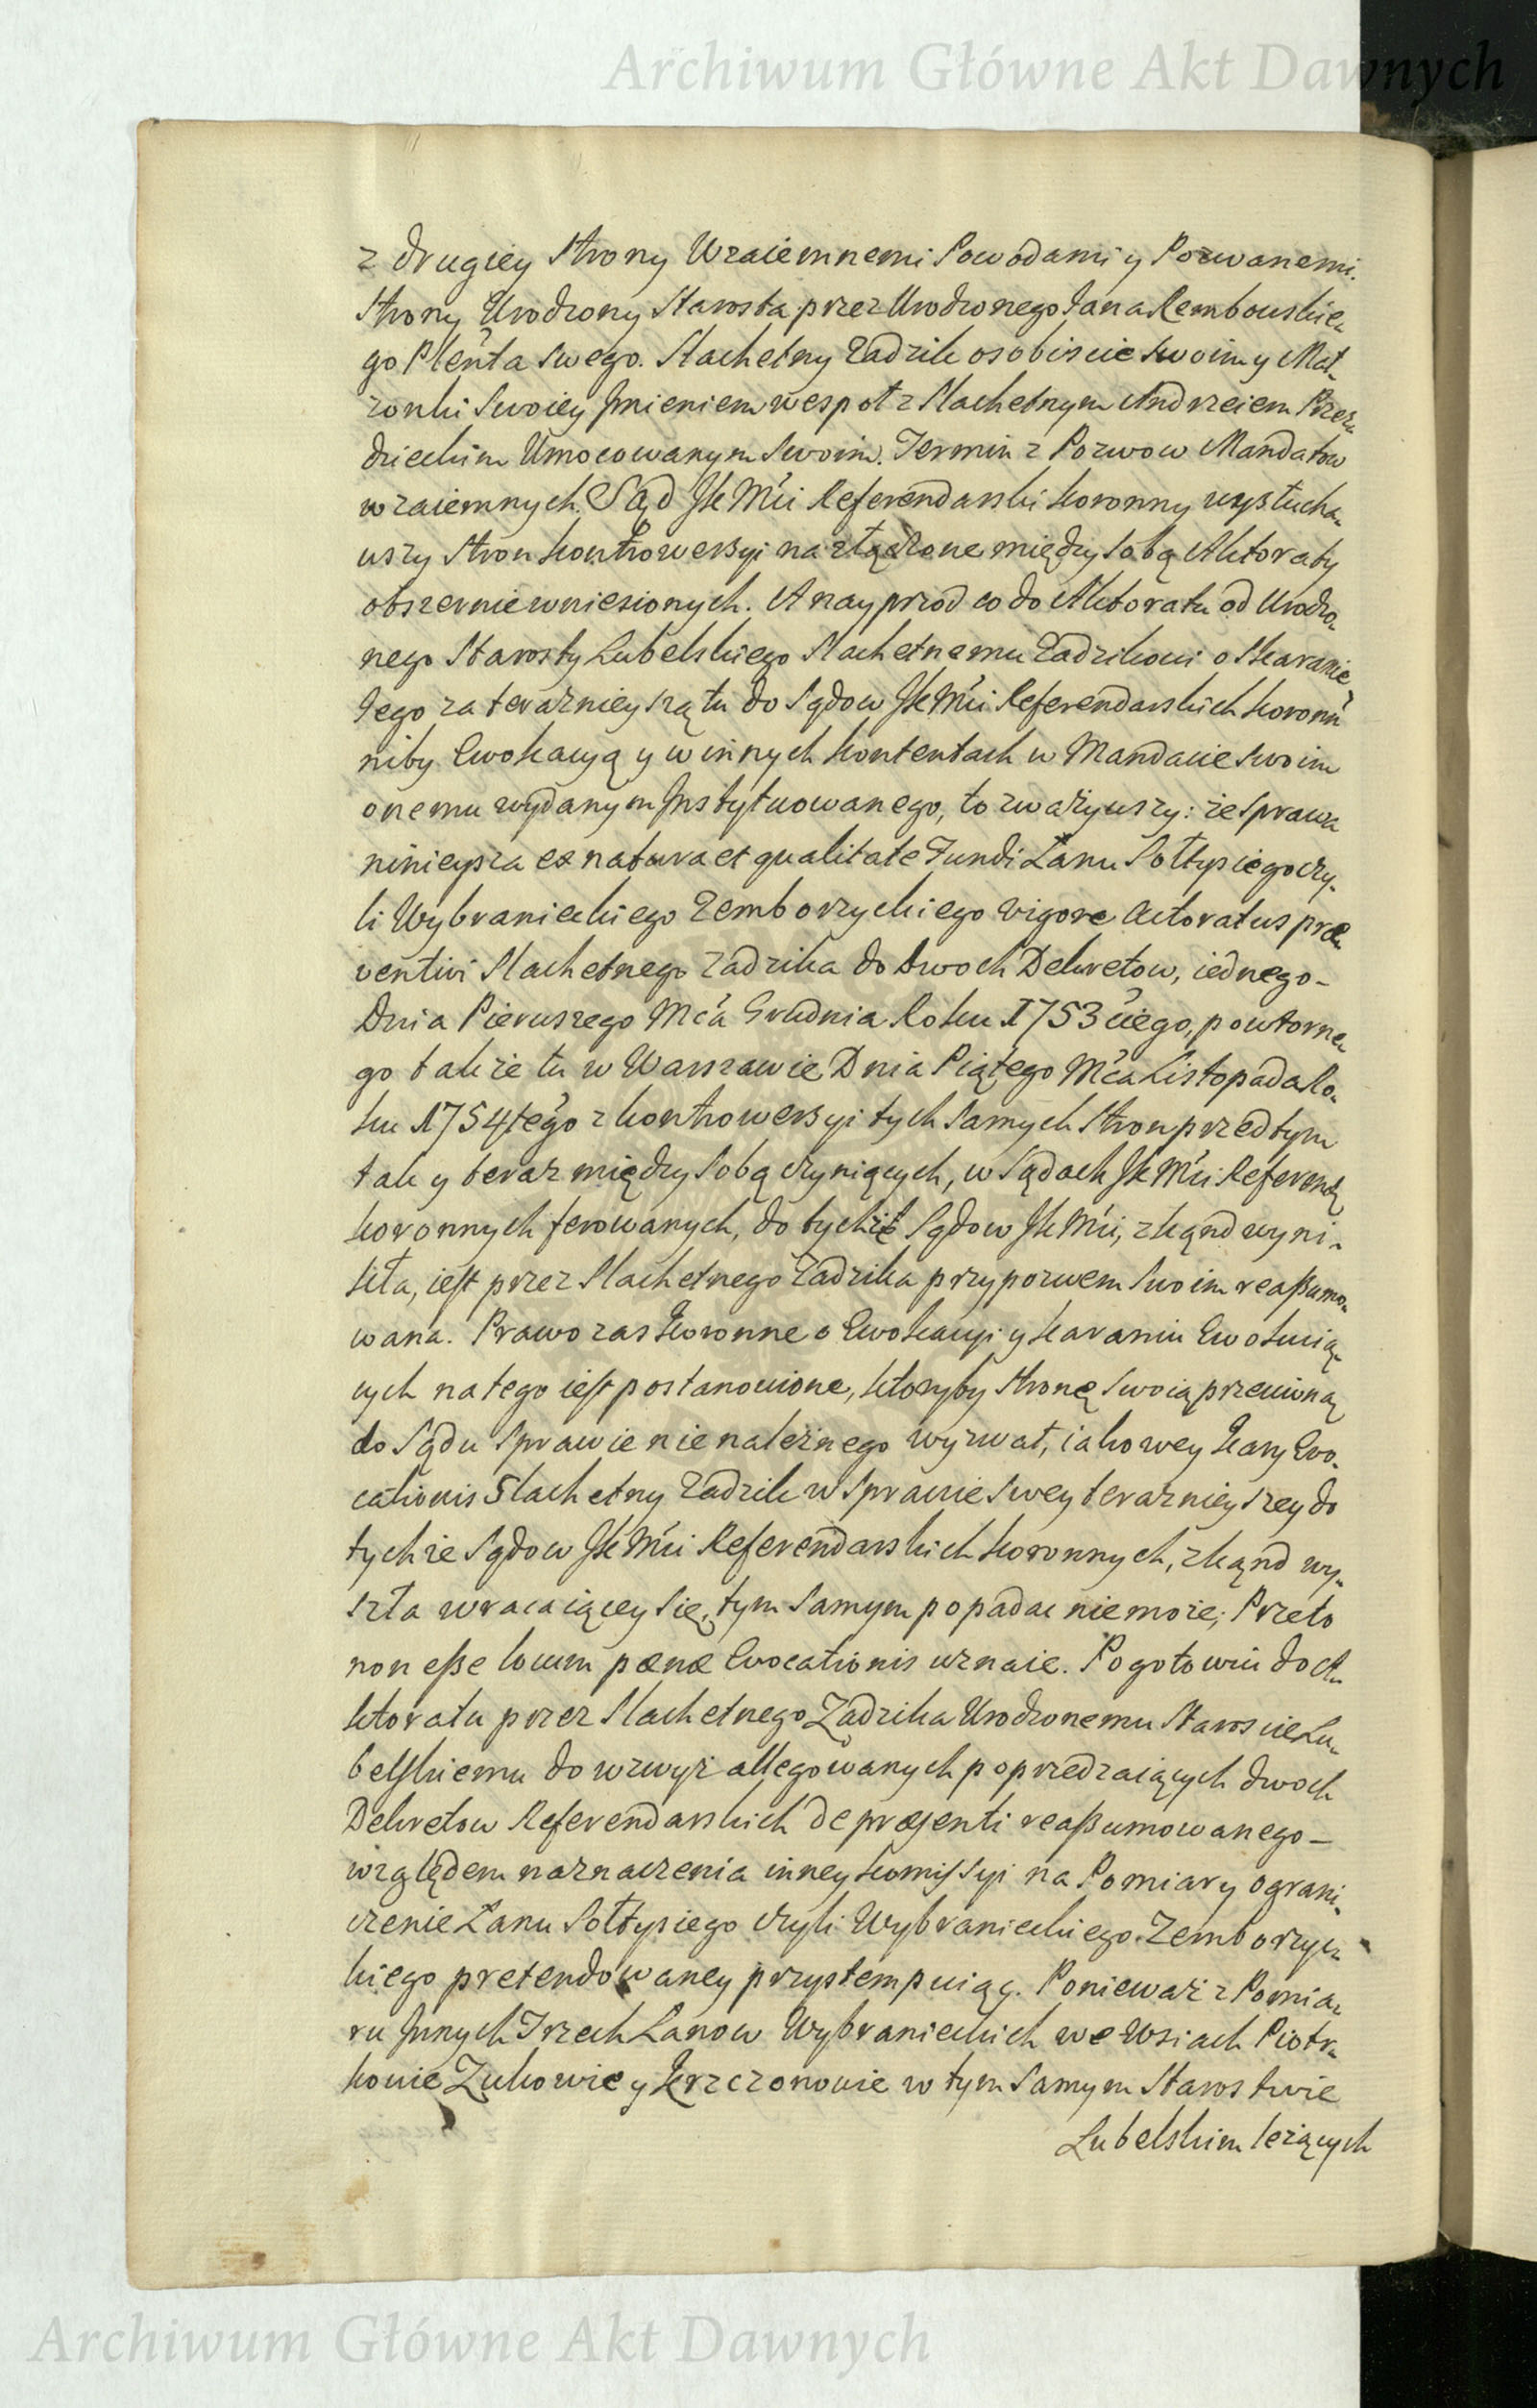 Archiwum Główne Akt Dawnych
z drugiey Strony Wzaiemnemi Powodami y Pozwanemi.
Strony Urodzony Starosta przez Urodzonego Jana Rembowskie-
go Plenta swego. Slachetny Zadzik osobiscie swoim y Mał-
zonki Swoiey Jmieniem wespoł z Slachetnym Andrzeiem Przez-
dzieckim Umocowanym Swoim. Termin z Pozwow Mandatow
wzaiemnych. Sąd JK Mci Referendarski Koronny wysłucha-
wszy Stron Kontrowersyi na złączone między sobą Aktoraty
obszernie wniesionych. A nayprzod co do Aktoratu od Urodzo-
nego Starosty Lubelskiego Slachetnemu Zadzikowi o Skaranie
Jego za teraznieyszą tu do Sądow JK Mci Referendarskich Koronn
niby Ewokacyą y w innych Kontentach w Mandacie Swoim
onemu wydanym Jnstytuowanego, to zwazywszy: ze Sprawa
ninieysza ex natura et qualitate Fundi Łanu Sołtysiego czy-
li Wybranieckiego Zemborzyckiego vigore Actoratus præ-
ventivi Slachetnego Zadzika do dwoch Dekretow, iednego -
Dnia Pierwszego Mca Grudnia Roku 1753ciego, powtorne-
go takze tu w Warszawie Dnia Piątego Mca Listopada Ro-
ku 1754tego z Kontrowersyi tych Samych Stron przedtym
tak y teraz między Sobą czyniących, w Sądach JK Mci Referend.
Koronnych ferowanych, do tychże Sądow JK Mci, zkąnd wyni-
kła, iest przez Slachetnego Zadzika przypozwem Swoim reaßumo-
wana. Prawo zas Koronne o Ewokacyi y karaniu Ewokuią-
cych na tego iest postanowione, ktoryby Stronę Swoią przeciwną
do Sądu Sprawie nie naleznego wyzwał, iakowey Kary Evo-
cationis Slachetny Zadzik w Sprawie Swey teraznieyszey do
tychze Sądow JK Mci Referendarskich Koronnych, zkąnd wy-
szła wracaiącey Się, tym Samym popadac nie moze; Przeto
non eße locum pænæ Evocationis uznaie. Pogotowiu do A-
ktoratu przez Slachetnego Zadzika Urodzonemu Staroscie Lu-
belskiemu do wzwyz allegowanych poprzedzaiących dwoch
Dekretow Referendarskich de præsenti reaßumowanego -
względem naznaczenia inney Kommissyi na Pomiar y ograni-
czenie Łanu Sołtysiego czyli Wybranieckiego Zemborzyc-
kiego pretendowaney przystempuiąc. Poniewaz z Pomia-
ru Jnnych Trzech Łanow Wybranieckich we Wsiach Piotr-
kowie Zukowie y Krzczonowie w tym Samym Starostwie
Lubelskim lezących
Archiwum Główne Akt Dawnych